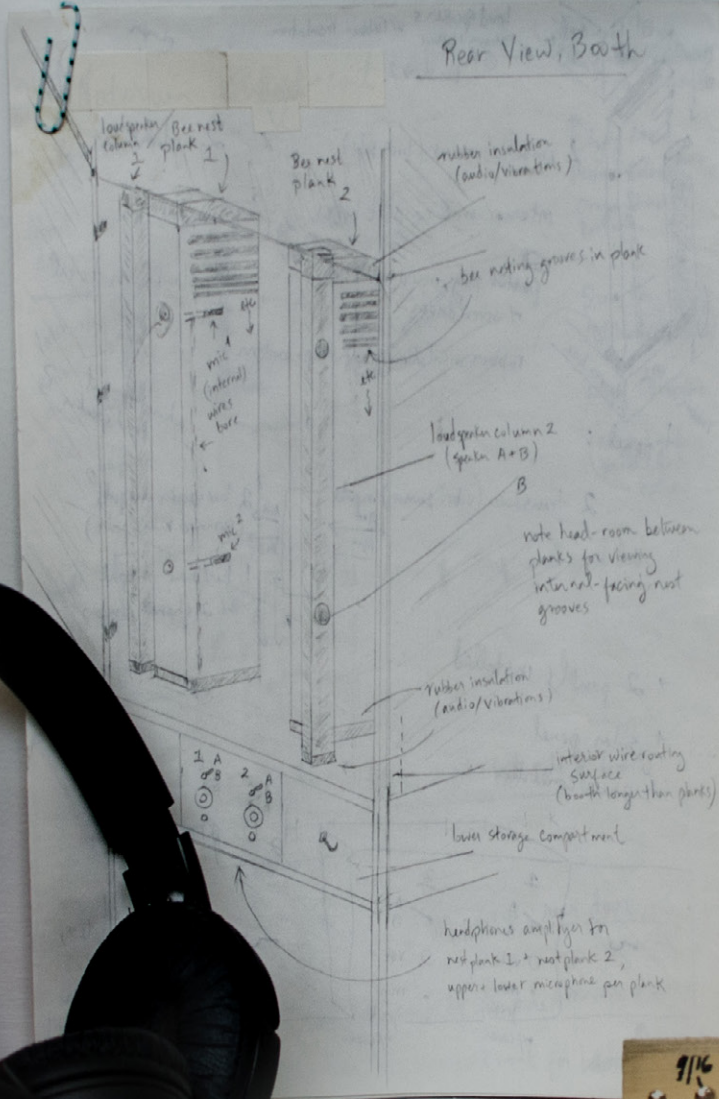 Rear View, Booth
loudspeaker
column
1
Bee nest
plank
1
Bee nest
plank
2
rubber insulation
(audio/vibrations)
bee nesting grooves in plank
etc
mic 1
(internal)
wires
bore
etc.
loudspeaker column 2
(speaker A + B)
B
note head-room between
planks for viewing
internal-facing nest
grooves
mic 2
rubber insulation
(audio/vibrations)
interior wire routing
surface
(booth longer than planks)
1 A
B
2 A
B
lower storage compartment
headphones amplifyer for
nest plank 1 + nest plank 2,
upper + lower microphone per plank
9/16